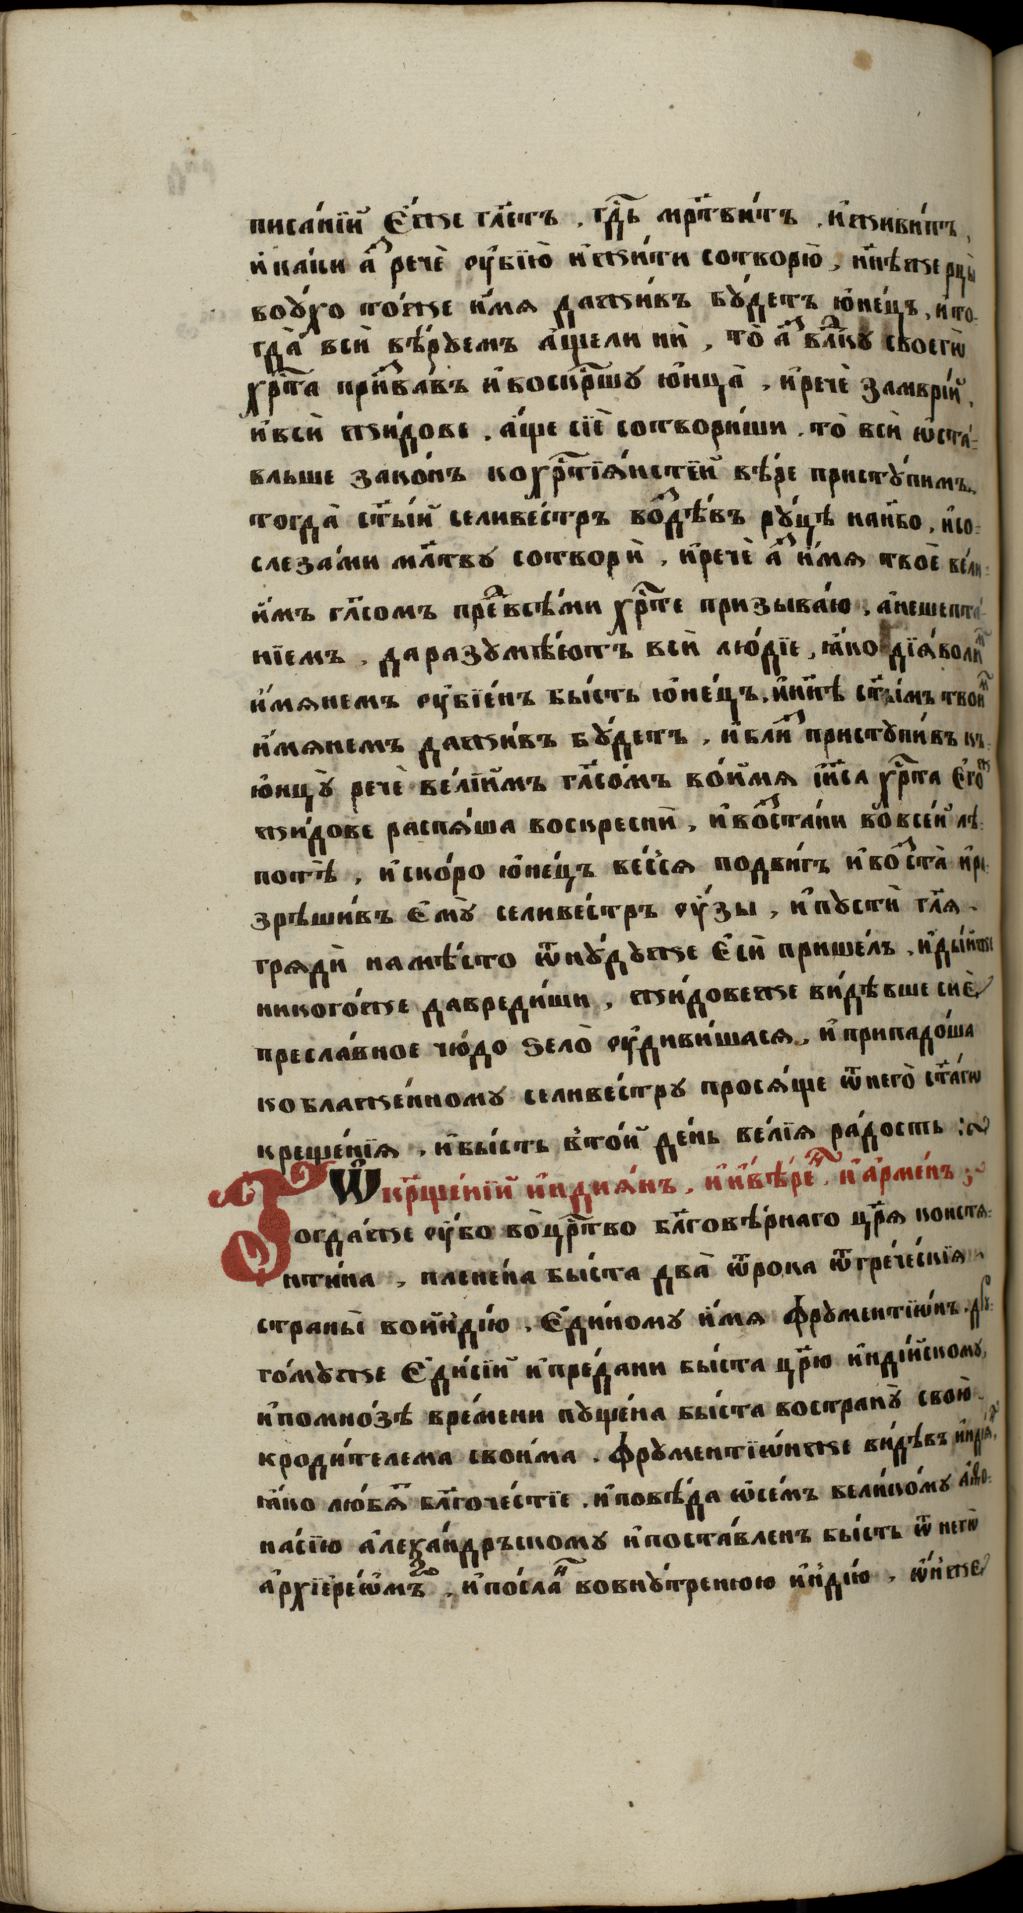 писа́нїи҆ є҆́же гл҃етъ , гд҇ь мр҃твитъ , и҆живи́тъ ,
и҆ па́ки а҆́з речѐ ᲂу҆бїю̀ и҆ жи́ти сотворю̀ , нн҃ѣже рцы̀
воу́хо то́же и҆́мя да жи́въ бꙋ́детъ ю҆не́цъ , и҆ то
гда̀ всѝ вѣ́рꙋемъ а҆́щели нѝ , то̀ а҆́з влⷣкꙋ своегѡ̀
хрⷭ҇та̀ призва́въ и҆ воскрⷭ҇шꙋ ю҆нца̀ , и҆ речѐ замврі́й ,
и҆ всѝ жи́дове , а҆́ще сїѐ сотвори́ши , то̀ всѝ ѡ҆ста́
вльше зако́нъ ко хрⷭ҇тїя́нстѣй вѣ́ре пристꙋ́пимъ ,
тогда̀ ст҃ы́й селиве́стръ воздѣ́въ рꙋ́цѣ на не҃бо , и҆ со
слеза́ми мл҃твꙋ сотворѝ , и҆ речѐ а҆́з и҆́мя твоѐ ве́ли
имъ гл҃сомъ предⸯ всѣ́ми хрⷭ҇те призыва́ю , а҆ не шепта́
нїемъ , да разꙋмѣ́ютъ всѝ лю́дїе , ꙗ҆́ко дїя́волим
и҆́мянемъ ᲂу҆бїе́нъ бы́сть ю҆не́цъ , и҆ нн҃ѣ ст҃ы́мъ твои́м
и҆́мянемъ да жи́въ бꙋ́детъ , и҆ бли́з пристꙋпи́въ къ
ю҆нцꙋ̀ речѐ ве́лїимъ гл҃со́мъ во и҆́мя і҆и҃са хрⷭ҇та̀ є҆го́ж
жи́дове распя́ша воскреснѝ , и҆ воста́ни во все́й лѣ́
потѣ , и҆ ско́ро ю҆не́цъ ве́сся подви́гъ и҆ воста̀ и҆ ра
зрѣши́въ є҆мꙋ̀ селиве́стръ ᲂу҆́зы , и҆ пꙋстѝ гл҃я .
грядѝ на мѣ́сто ѿнꙋ́дꙋже є҆сѝ прише́лъ , и҆ ды́ иже
никого́же да вреди́ши , жи́довеже ви́дѣвше сиѐ
пресла́вное чю́до ѕело̀ ᲂу҆диви́шася , и҆ припадо́ша
ко блаже́нному селиве́стрꙋ прося́ще ѿ него̀ ст҃а́гѡ
креще́нїя , и҆ бы́сть в то́й де́нь ве́лїя ра́дость :~
Ѡ҆ кр҃ще́нїи и҆ндия́нъ , и҆ и҆́вѣре , и҆ а҆рме́нъ ;~
Тогда́же ᲂу҆́бо во црⷭ҇тво бл҃говѣ́рнаго цр҃я̀ конста
нти́на , плене́на бы́ста два̀ ѿрока ѿ гре́ческїя
страны̀ во и҆́ндїю , є҆ди́ному и҆́мя фрꙋментїѡ́нъ , дрꙋ
го́мꙋже є҆ди́сїй и҆ пре́дани бы́ста цр҃ю̀ и҆нді́йскому ,
и҆ по мно́зѣ вре́мени пꙋще́на бы́ста во странꙋ̀ свою̀
к роди́телема свои́ма . фрꙋментїѡ́нже ви́дѣвъ и҆ндїя́н
ꙗ҆́ко любя́т бл҃гоче́стїе , и҆ повѣ́да ѡ҆ се́мъ вели́кому а҆фо
на́сїю а҆леѯа́ндръскому и҆ поста́вленъ бы́сть ѿ негѡ̀
а҆рхїере́ѡмъ , и҆ по́сланъ во внꙋ́тренюю и҆́ндїю , ѡ҆́нже